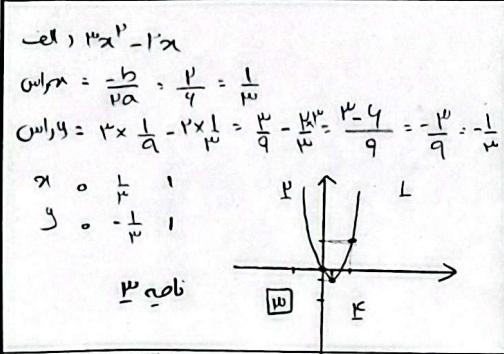 الف) ۳x² - ۲x
xراس = -b/۲a = ۲/۶ = ۱/۳
yراس = ۳ × ۱/۹ - ۲ × ۱/۳ = ۳/۹ - ۲/۳ = ۳-۶/۹ = -۳/۹ = -۱/۳
x ۰ ۱/۳ ۱
y ۰ -۱/۳ ۱
۲ ۱
ناحیه ۳
۳ ۴